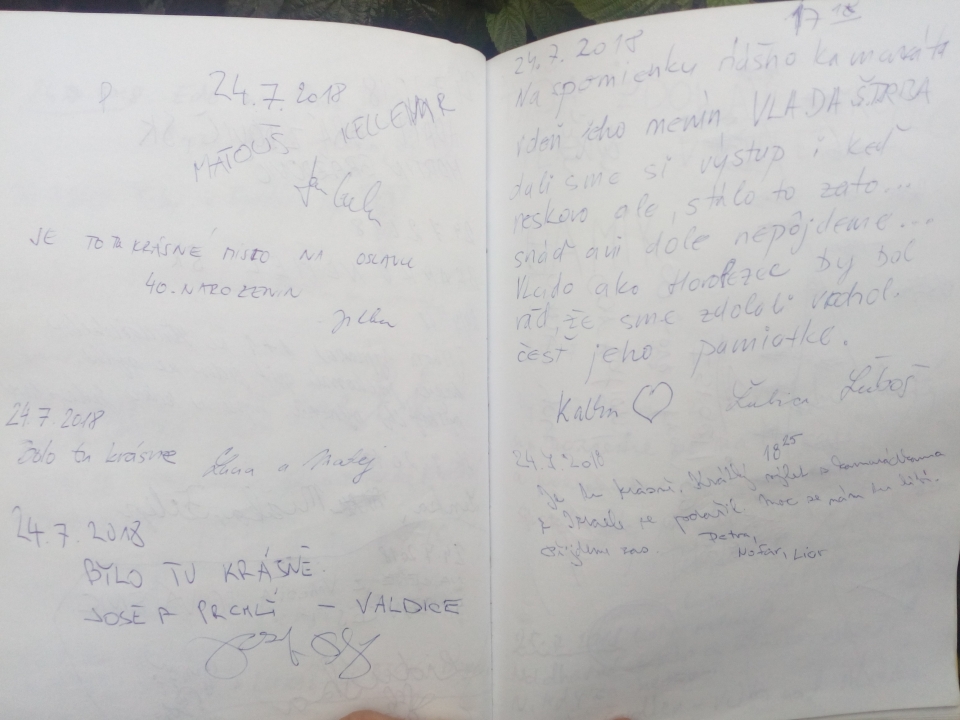 24.7.2018
MATOUŠ
JE TO TU KRÁSNÉ MÍSTO NA OSLAVU
40. NAROZENIN
24.7.2018
Bylo tu krásne Lura a Matej
24.7.2018
BYLO TU KRÁSNĚ.
JOSEF PRCHLÍ – VALDICE
24.7.2018 17 18
Na spomienku nášho kamaráta
v deň jeho menín VLADA ŠTRBA
dali sme si výstup i keď
neskoro ale, stálo to zato...
snáď ani dole nepôjdeme...
Vlado ako Horolezec by bol
rád, že sme zdolali vrchol.
česť jeho pamiatke.
Katka Ľubica Ľuboš
24.7.2018 18 25
Je tu krásně, Krátký výlet s kamarádkama
z Izraele se podařil. Moc se nám tu líbí.
Petra,
Nofar, Lior